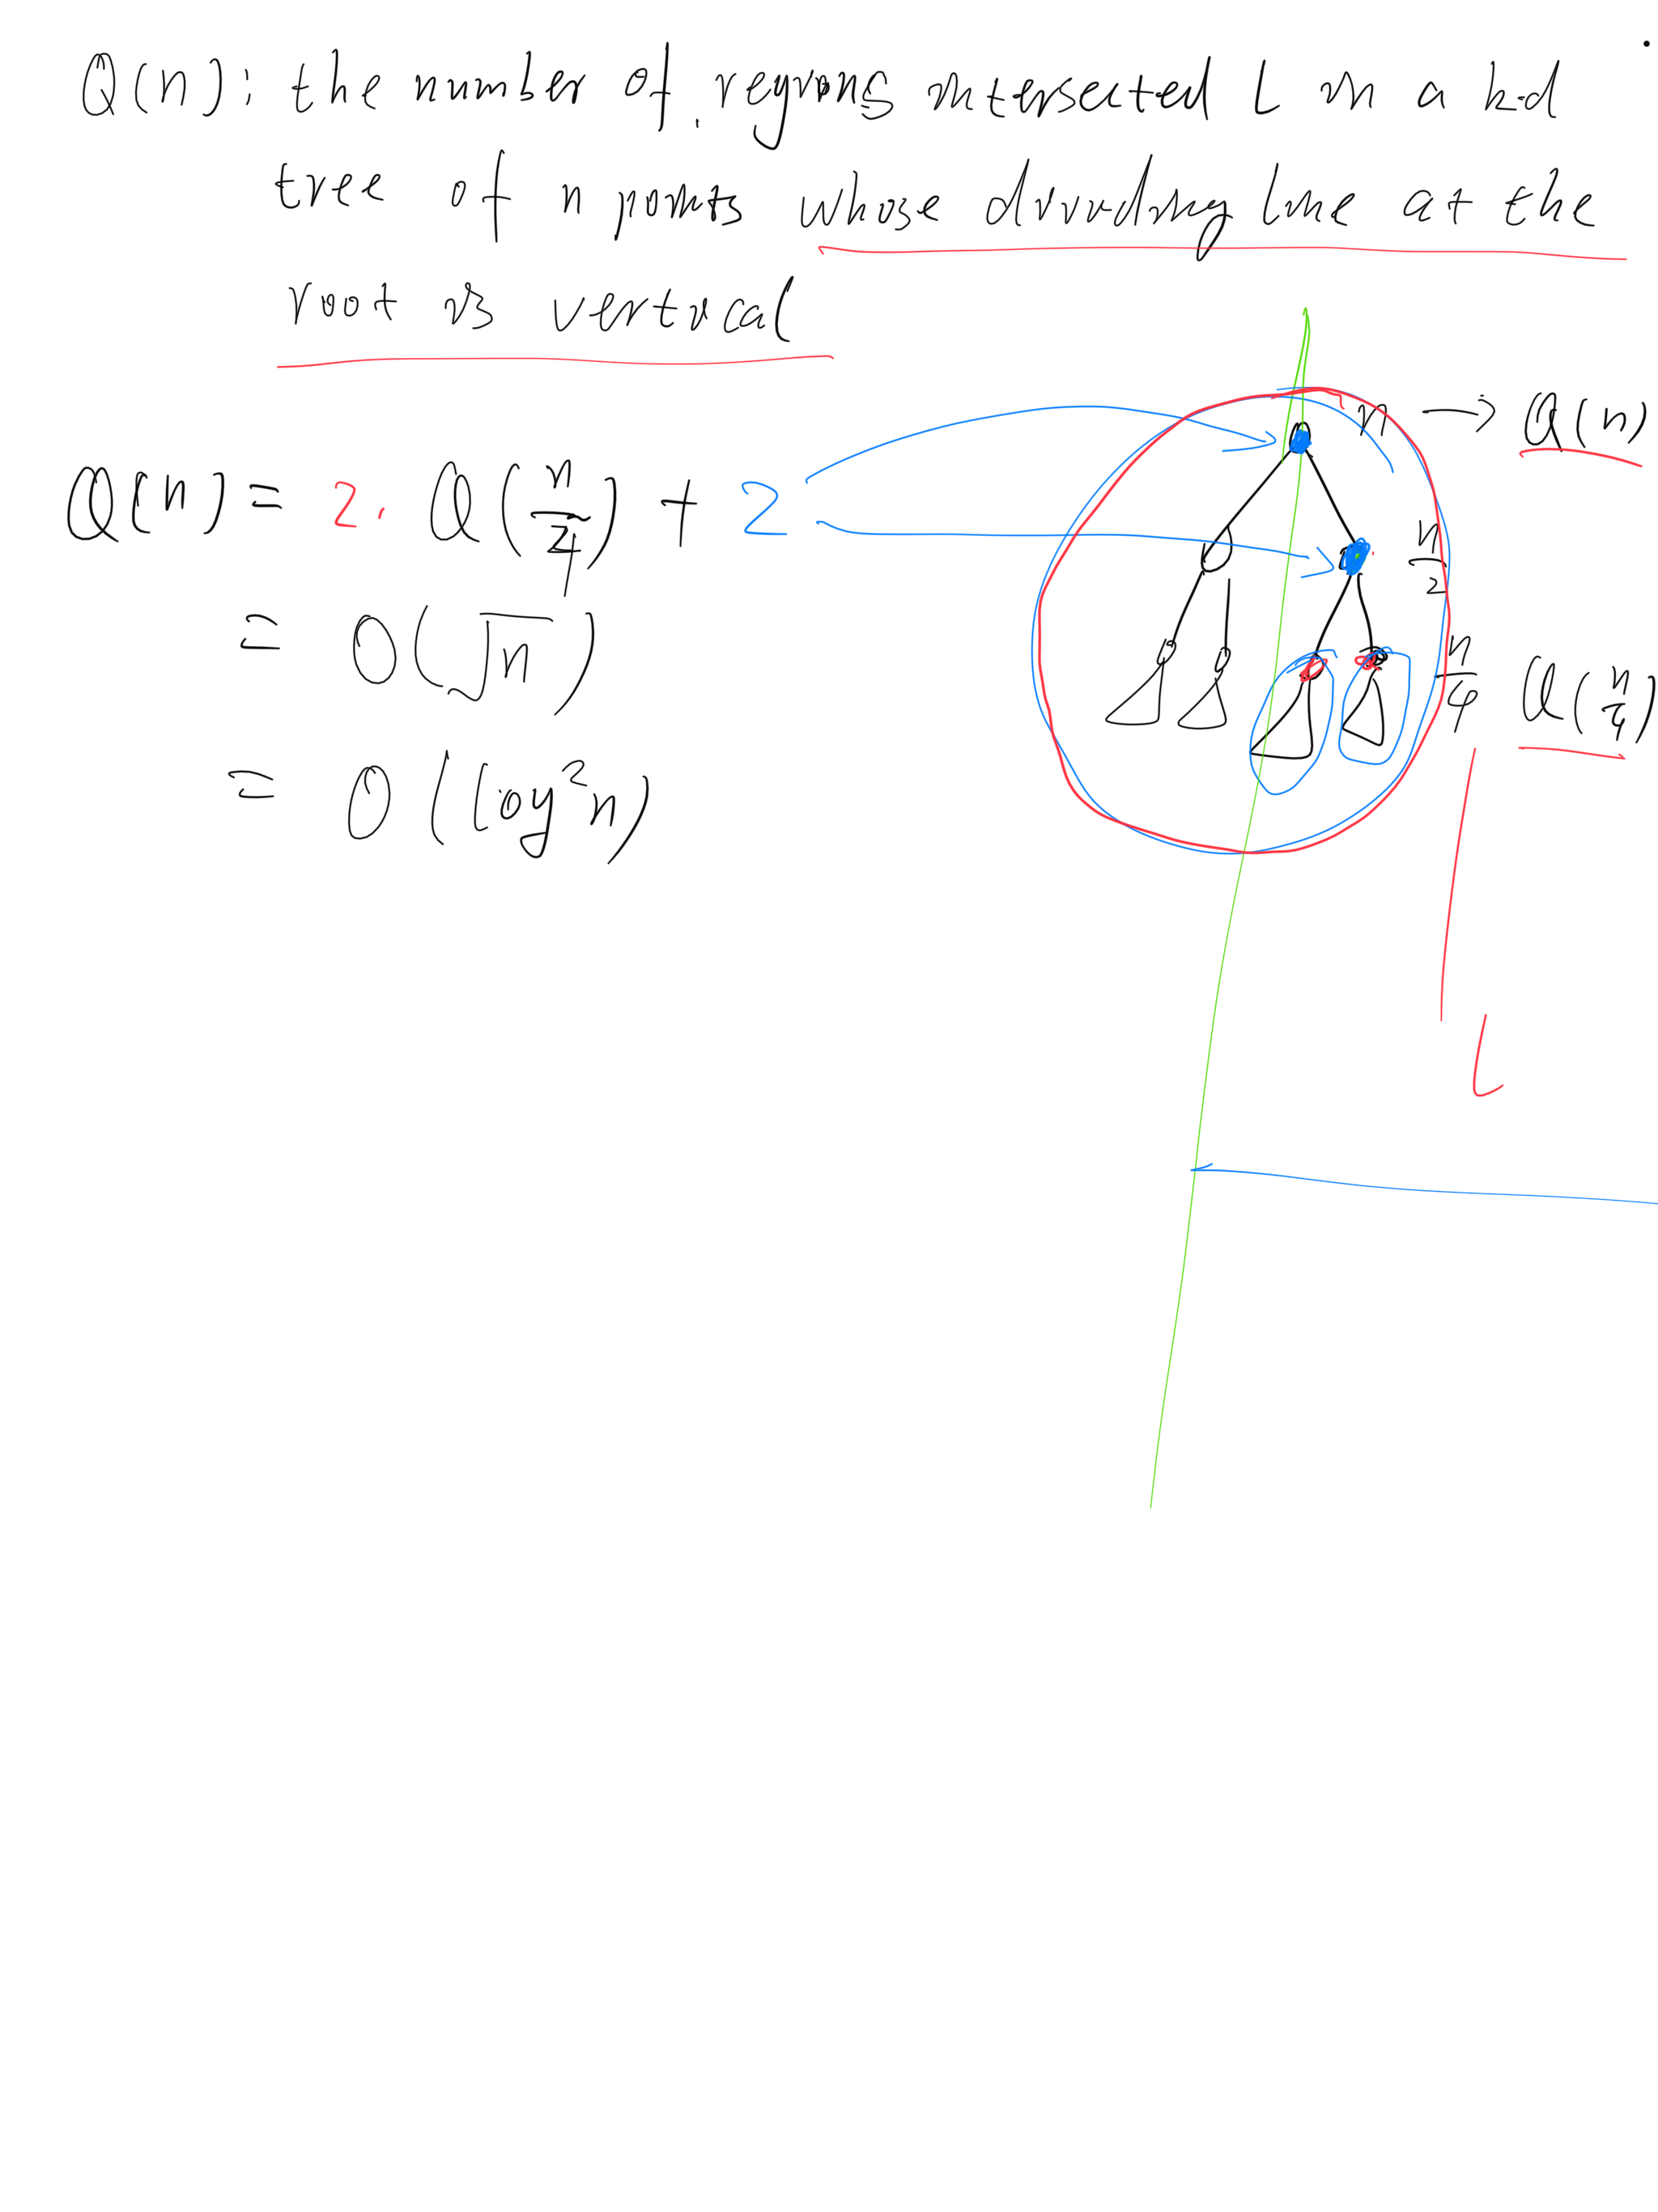 Q(n): the number of regions intersected L in a kd
tree of n points whose dividing line at the
root is vertical
n → Q(n)
Q(n) = 2. Q(n/4) + 2
n/2
= O(√n)
n/4 Q(n/4)
= O(log²n)
L